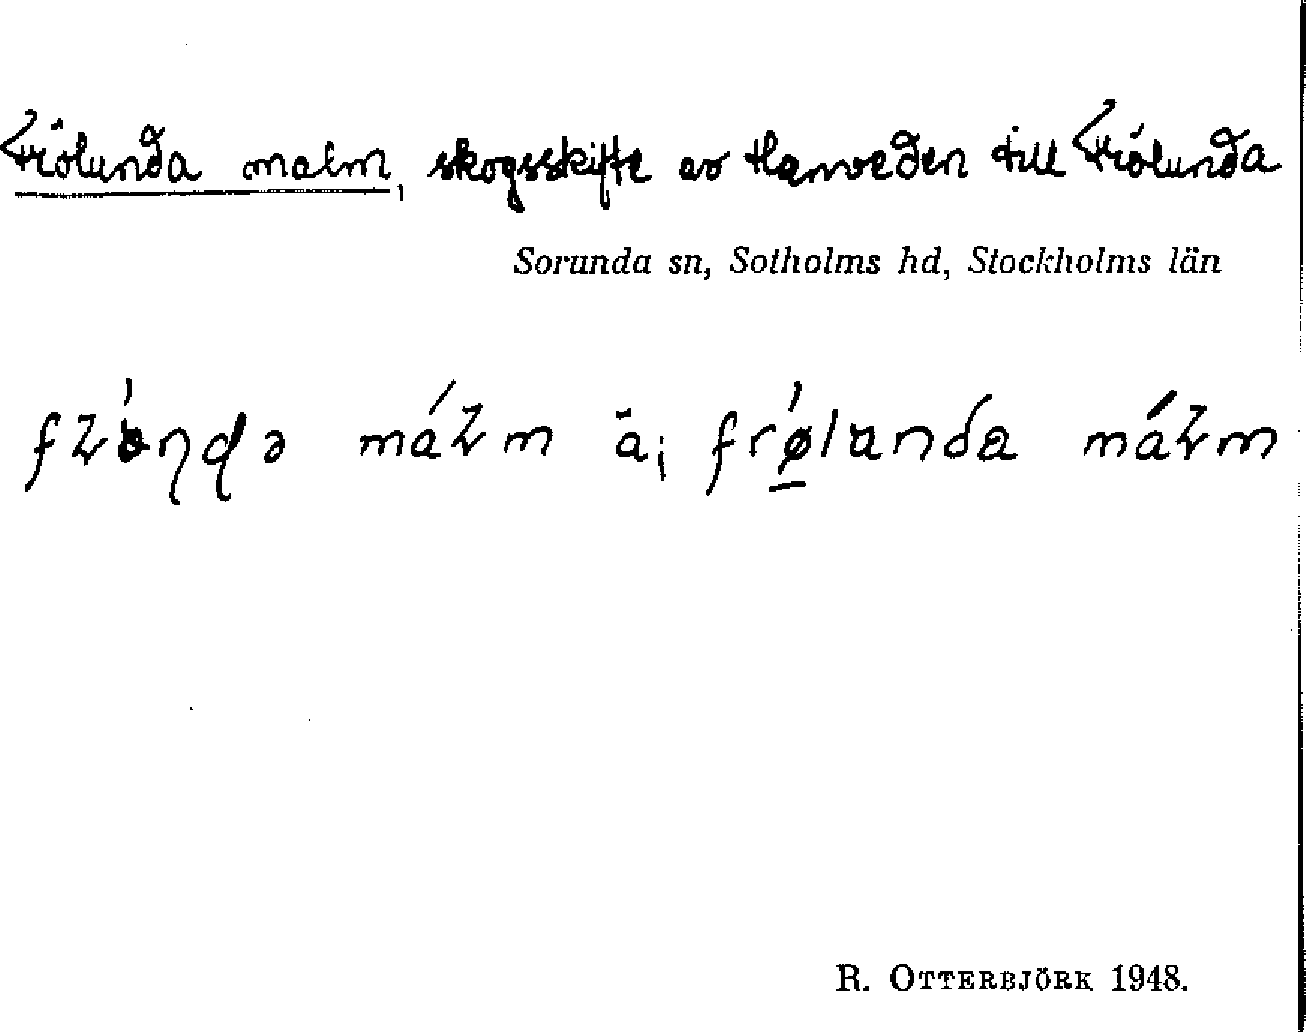 Frölunda malm, skogsskifte av Hanveden till Frölunda
Sorunda sn, Sotholms hd, Stockholms län
málm ä; frǿ̱lunda málm
R. OTTERBJÖRK 1948.